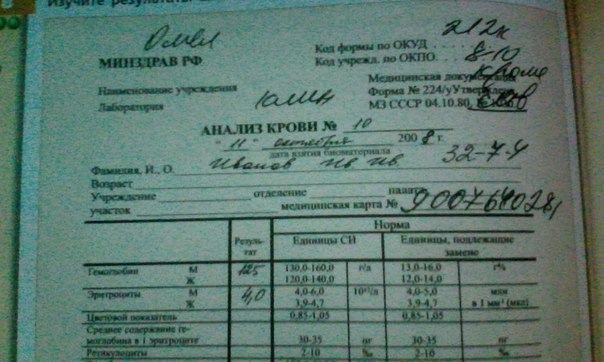 Изучите результаты
212к
МИНЗДРАВ РФ
Код формы по ОКУД
Код учрежд. по ОКПО 8-10
Медицинская документация
Наименование учреждения
Форма № 224/у Утверждена
Лаборатория
МЗ СССР 04.10.80, №
АНАЛИЗ КРОВИ № 10
"11" октября 2008 г.
дата взятия биоматериала
Фамилия, И., О. Иванов Ив. Ив. 32-74
Возраст
Учреждение отделение палата
участок медицинская карта №
Норма
Результат Единицы СИ Единицы, подлежащие замене
Гемоглобин М 125 130,0-160,0 г/л 13,0-16,0 г%
Ж 120,0-140,0 12,0-14,0
Эритроциты М 4,0 4,0-6,0 10¹²/л 4,0-5,0 млн
Ж 3,9-4,7 3,9-4,7 в 1 мм³ (мкл)
Цветовой показатель 0,85-1,05 0,85-1,05
Среднее содержание ге-
моглобина в 1 эритроците 30-35 пг 30-35 пг
Ретикулоциты 2-10 ‰ 2-10 ‰